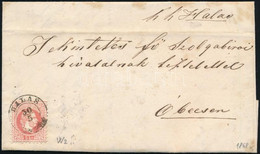 k k Halas
Tekintetes Fő Szolgabírói
hivatalnak tisztelettel
Ó becsen
HALAS